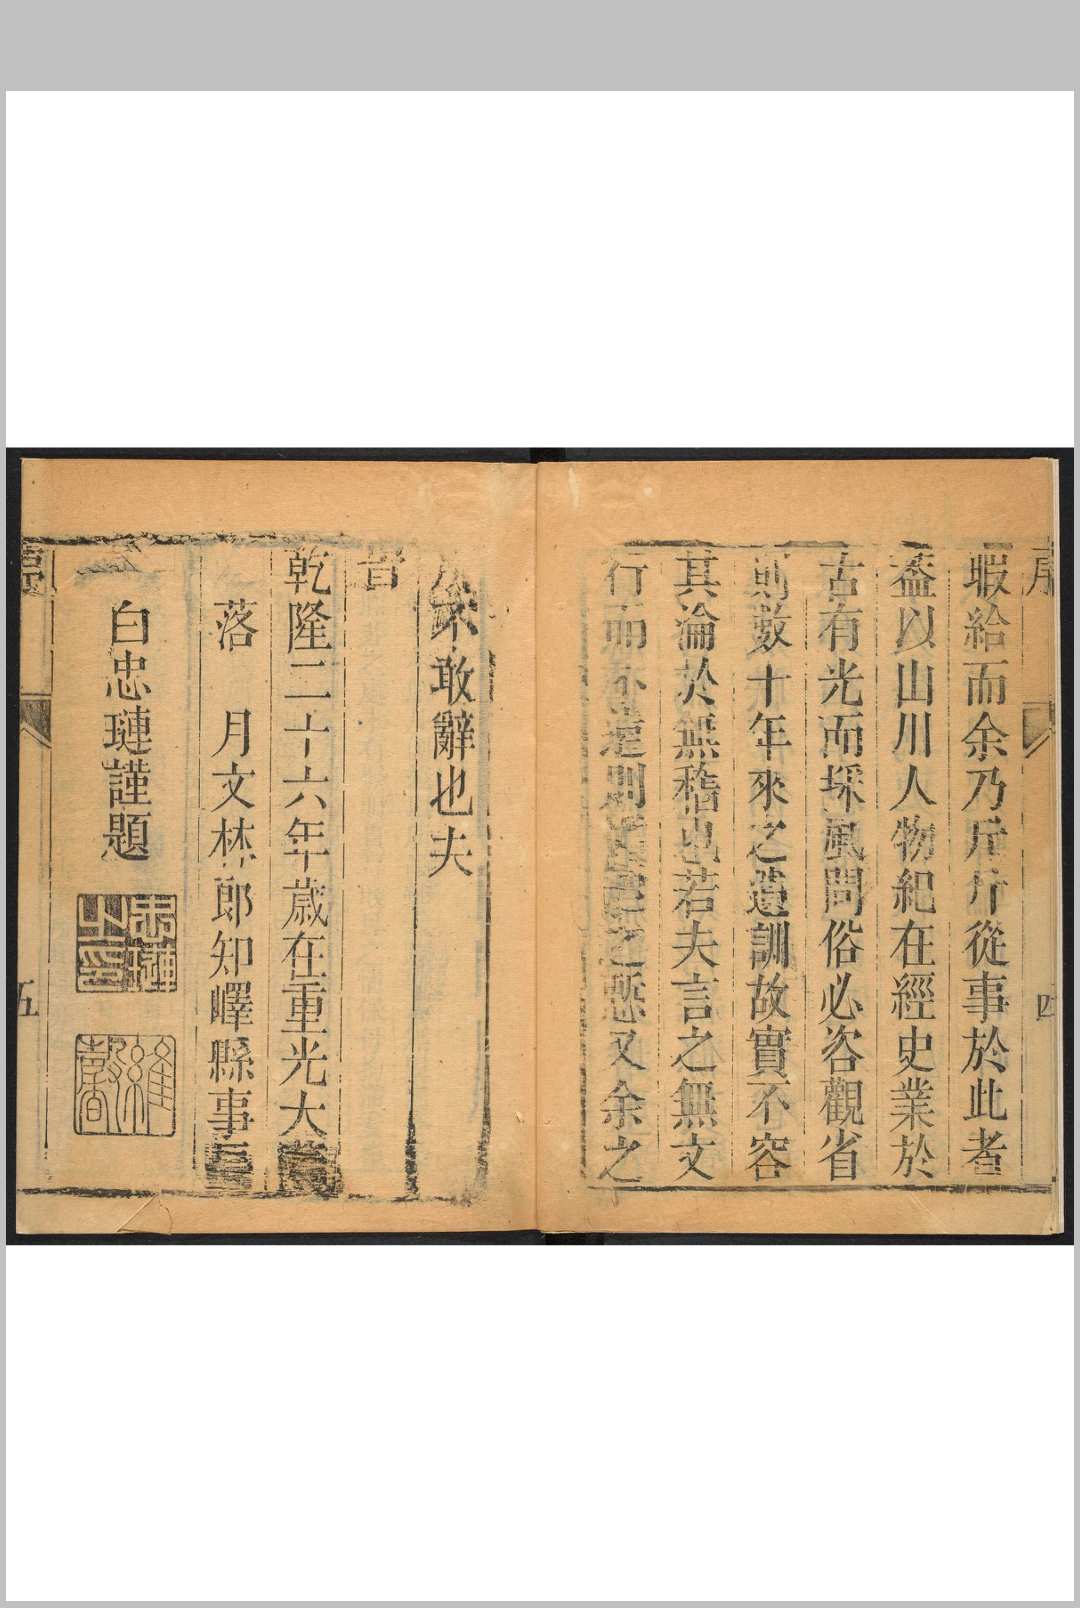 序
四
暇給而余乃斤斤從事於此者
葢以山川人物紀在經史業於
古有光而採風問俗必咨觀省
則數十年來之遺訓故實不容
其淪於無稽也若夫言之無文
行而不遠則
之慝又余之
不敢辭也夫
旹
乾隆二十六年歲在重光大
落 月文林郎知嶧縣事
白忠璉謹題
忠璉之印
五